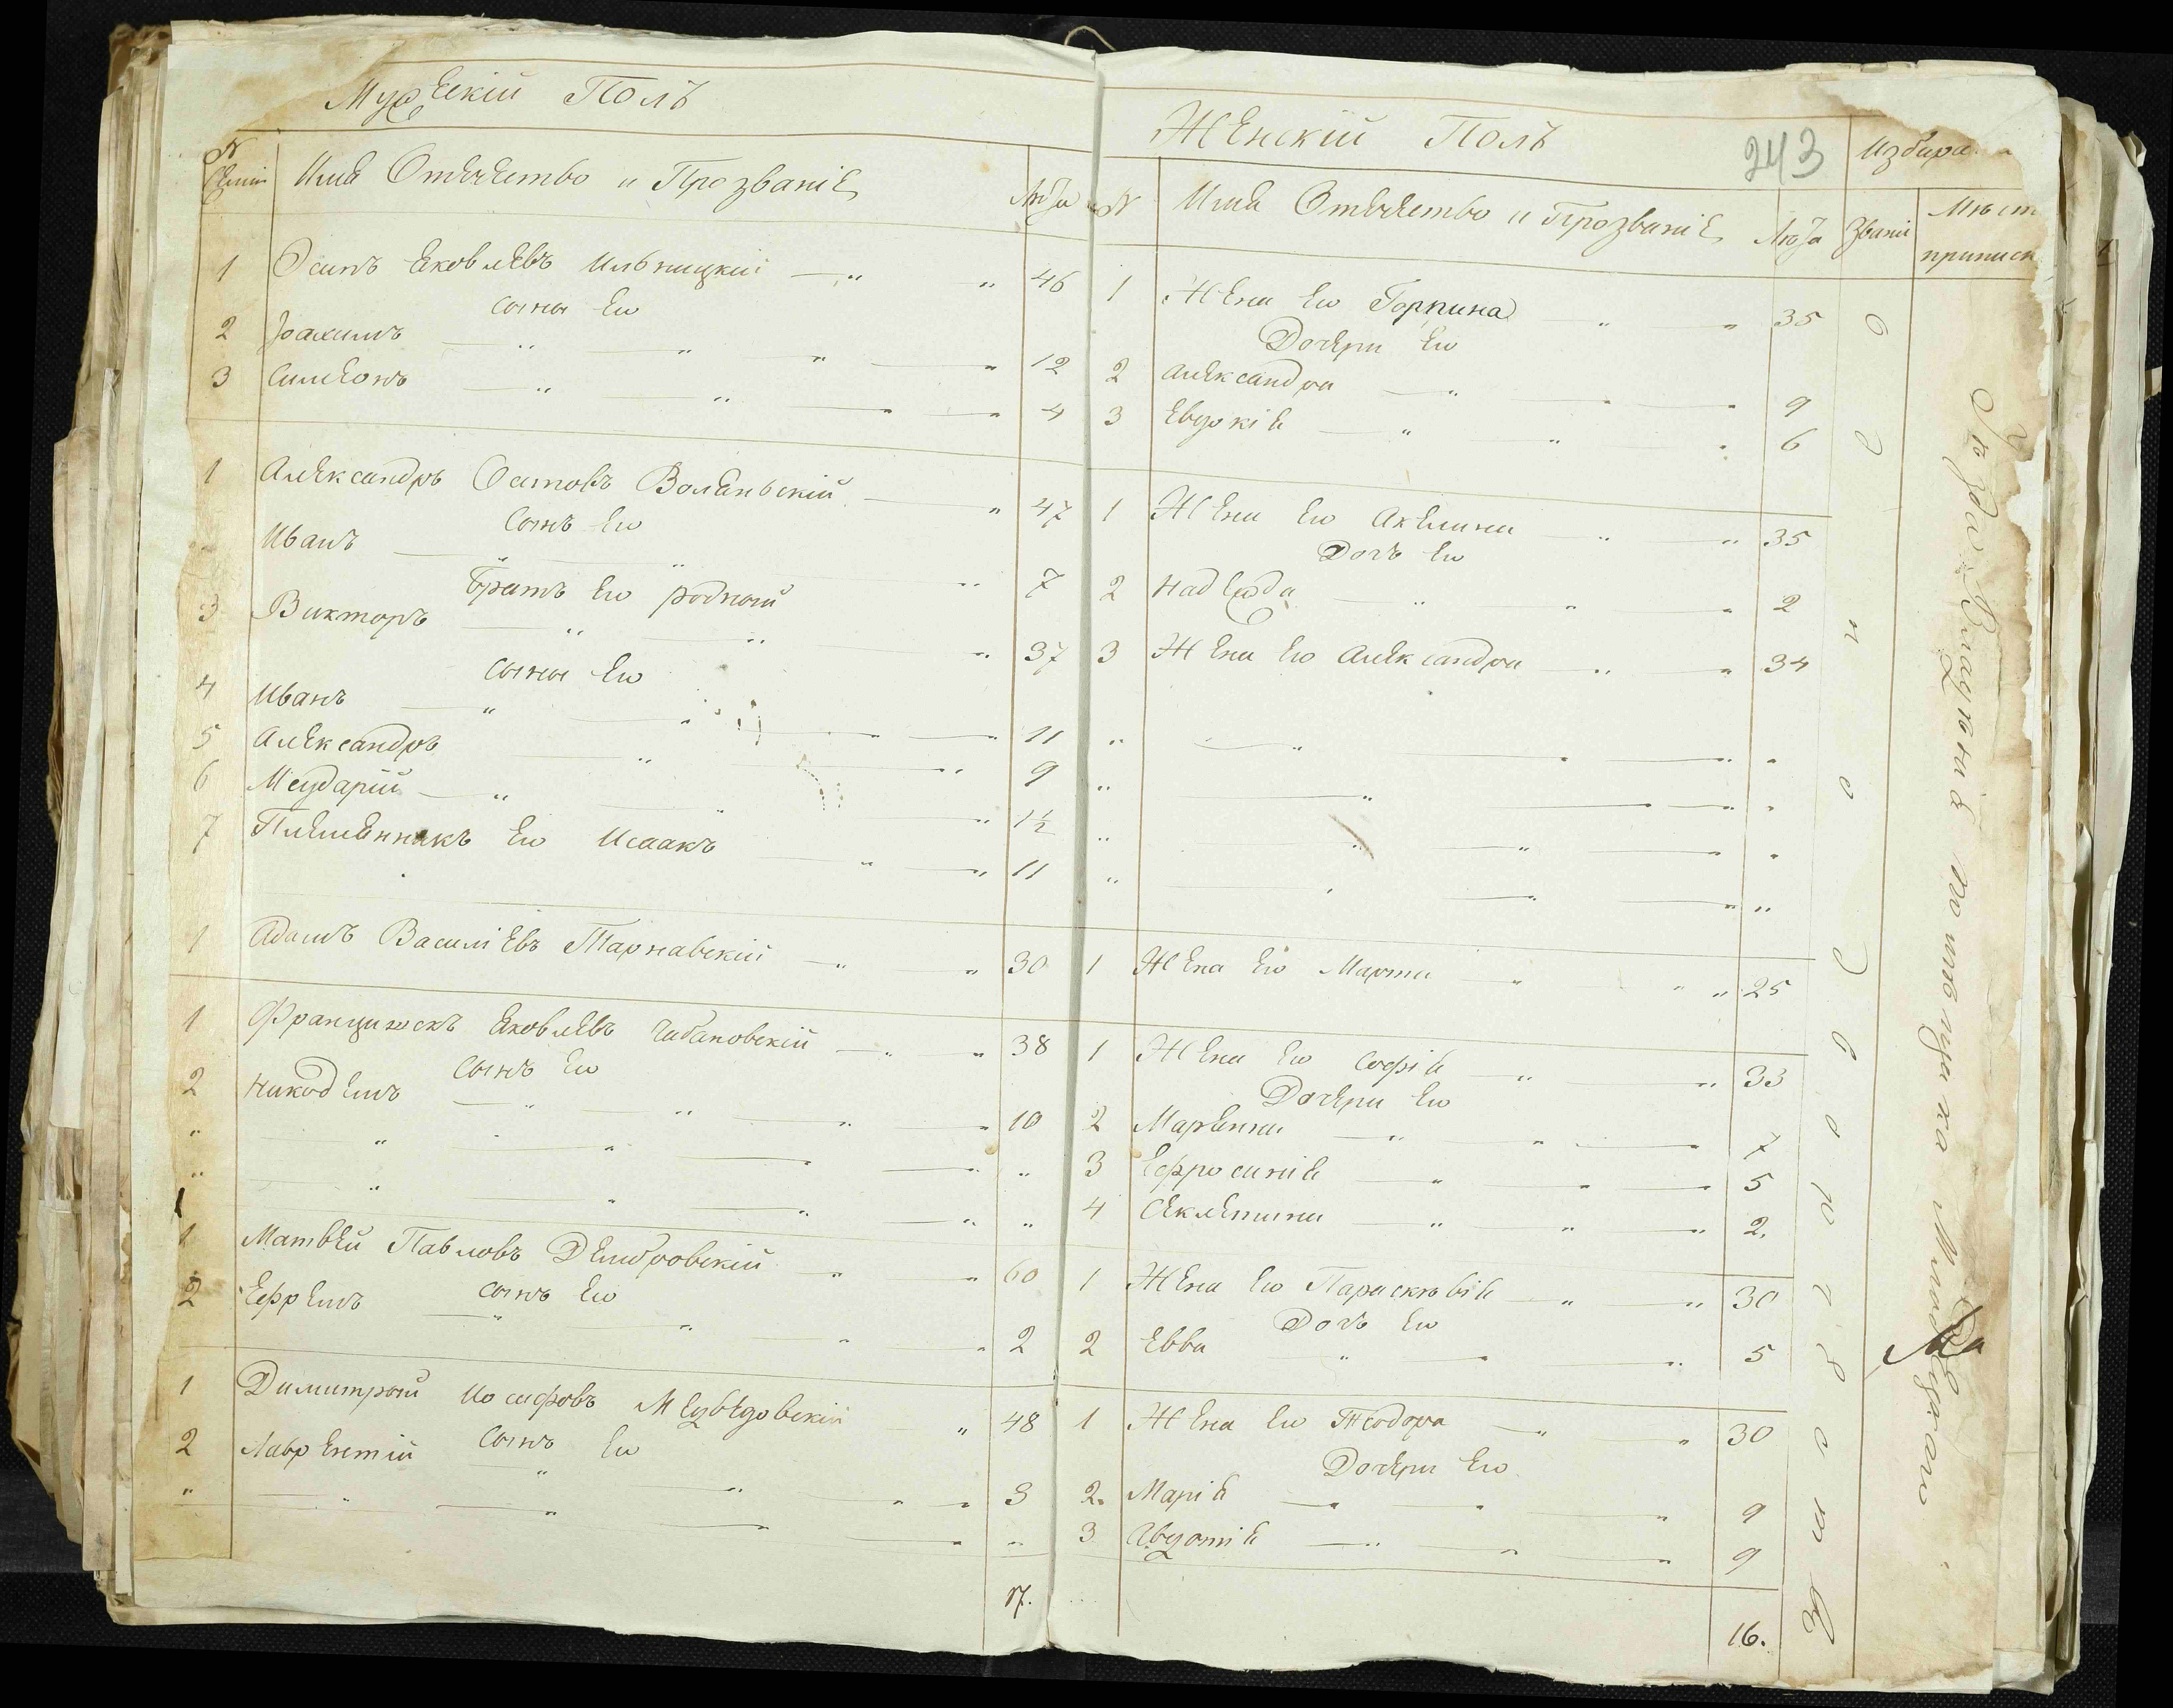 Мужескій Полъ
№ Семіи
Имя Отечество и Прозваніе
Люта
1 Осипъ Яковлевъ Ильницкій 46
сыны Ею
2 Іоахимъ 12
3 Симеонъ 4
1 Александръ Остповъ Воляньскій 47
Сынъ Ею
Иванъ 7
братъ Ею родный
3 Викторъ 37
сыны Ею
4 Иванъ 11
5 Александръ 9
6 Меударій 1½
7 Племянникъ Ею Исаакъ 11
1 Адамъ Василіевъ Тарнавскій 30
1 Францишскъ Яковлевъ Чабановскій 38
сынъ Ею
2 Никодемъ 10
1 Матвей Павловъ Дембровскій 60
сынъ Ею
2 Ефремъ 2
1 Димитрый Іосифовъ Медведовскій 48
сынъ Ею
2 Лаврентій 3
17.
Женскій Полъ
243
Избира
№ Имя Отечество и Прозваніе Люта Званіе
Мѣст
приписк
1 Жена Ею Горпина 35
Дочери Ею
2 Александра 9
3 Евдокія 6
1 Жена Ею Акелина 35
Дочъ Ею
2 Надежда 2
3 Жена Ею Александра 34
1 Жена Ею Марта 25
1 Жена Ею Софія 33
Дочери Ею
2 Маріянна 7
3 Ефросинія 5
4 Секлетина 2.
1 Жена Ею Параскѣвія 30
Дочъ Ею
2 Евва 5
1 Жена Ею Теодора 30
Дочери Ею
2. Марія 9
3 Авдотія 9
16.